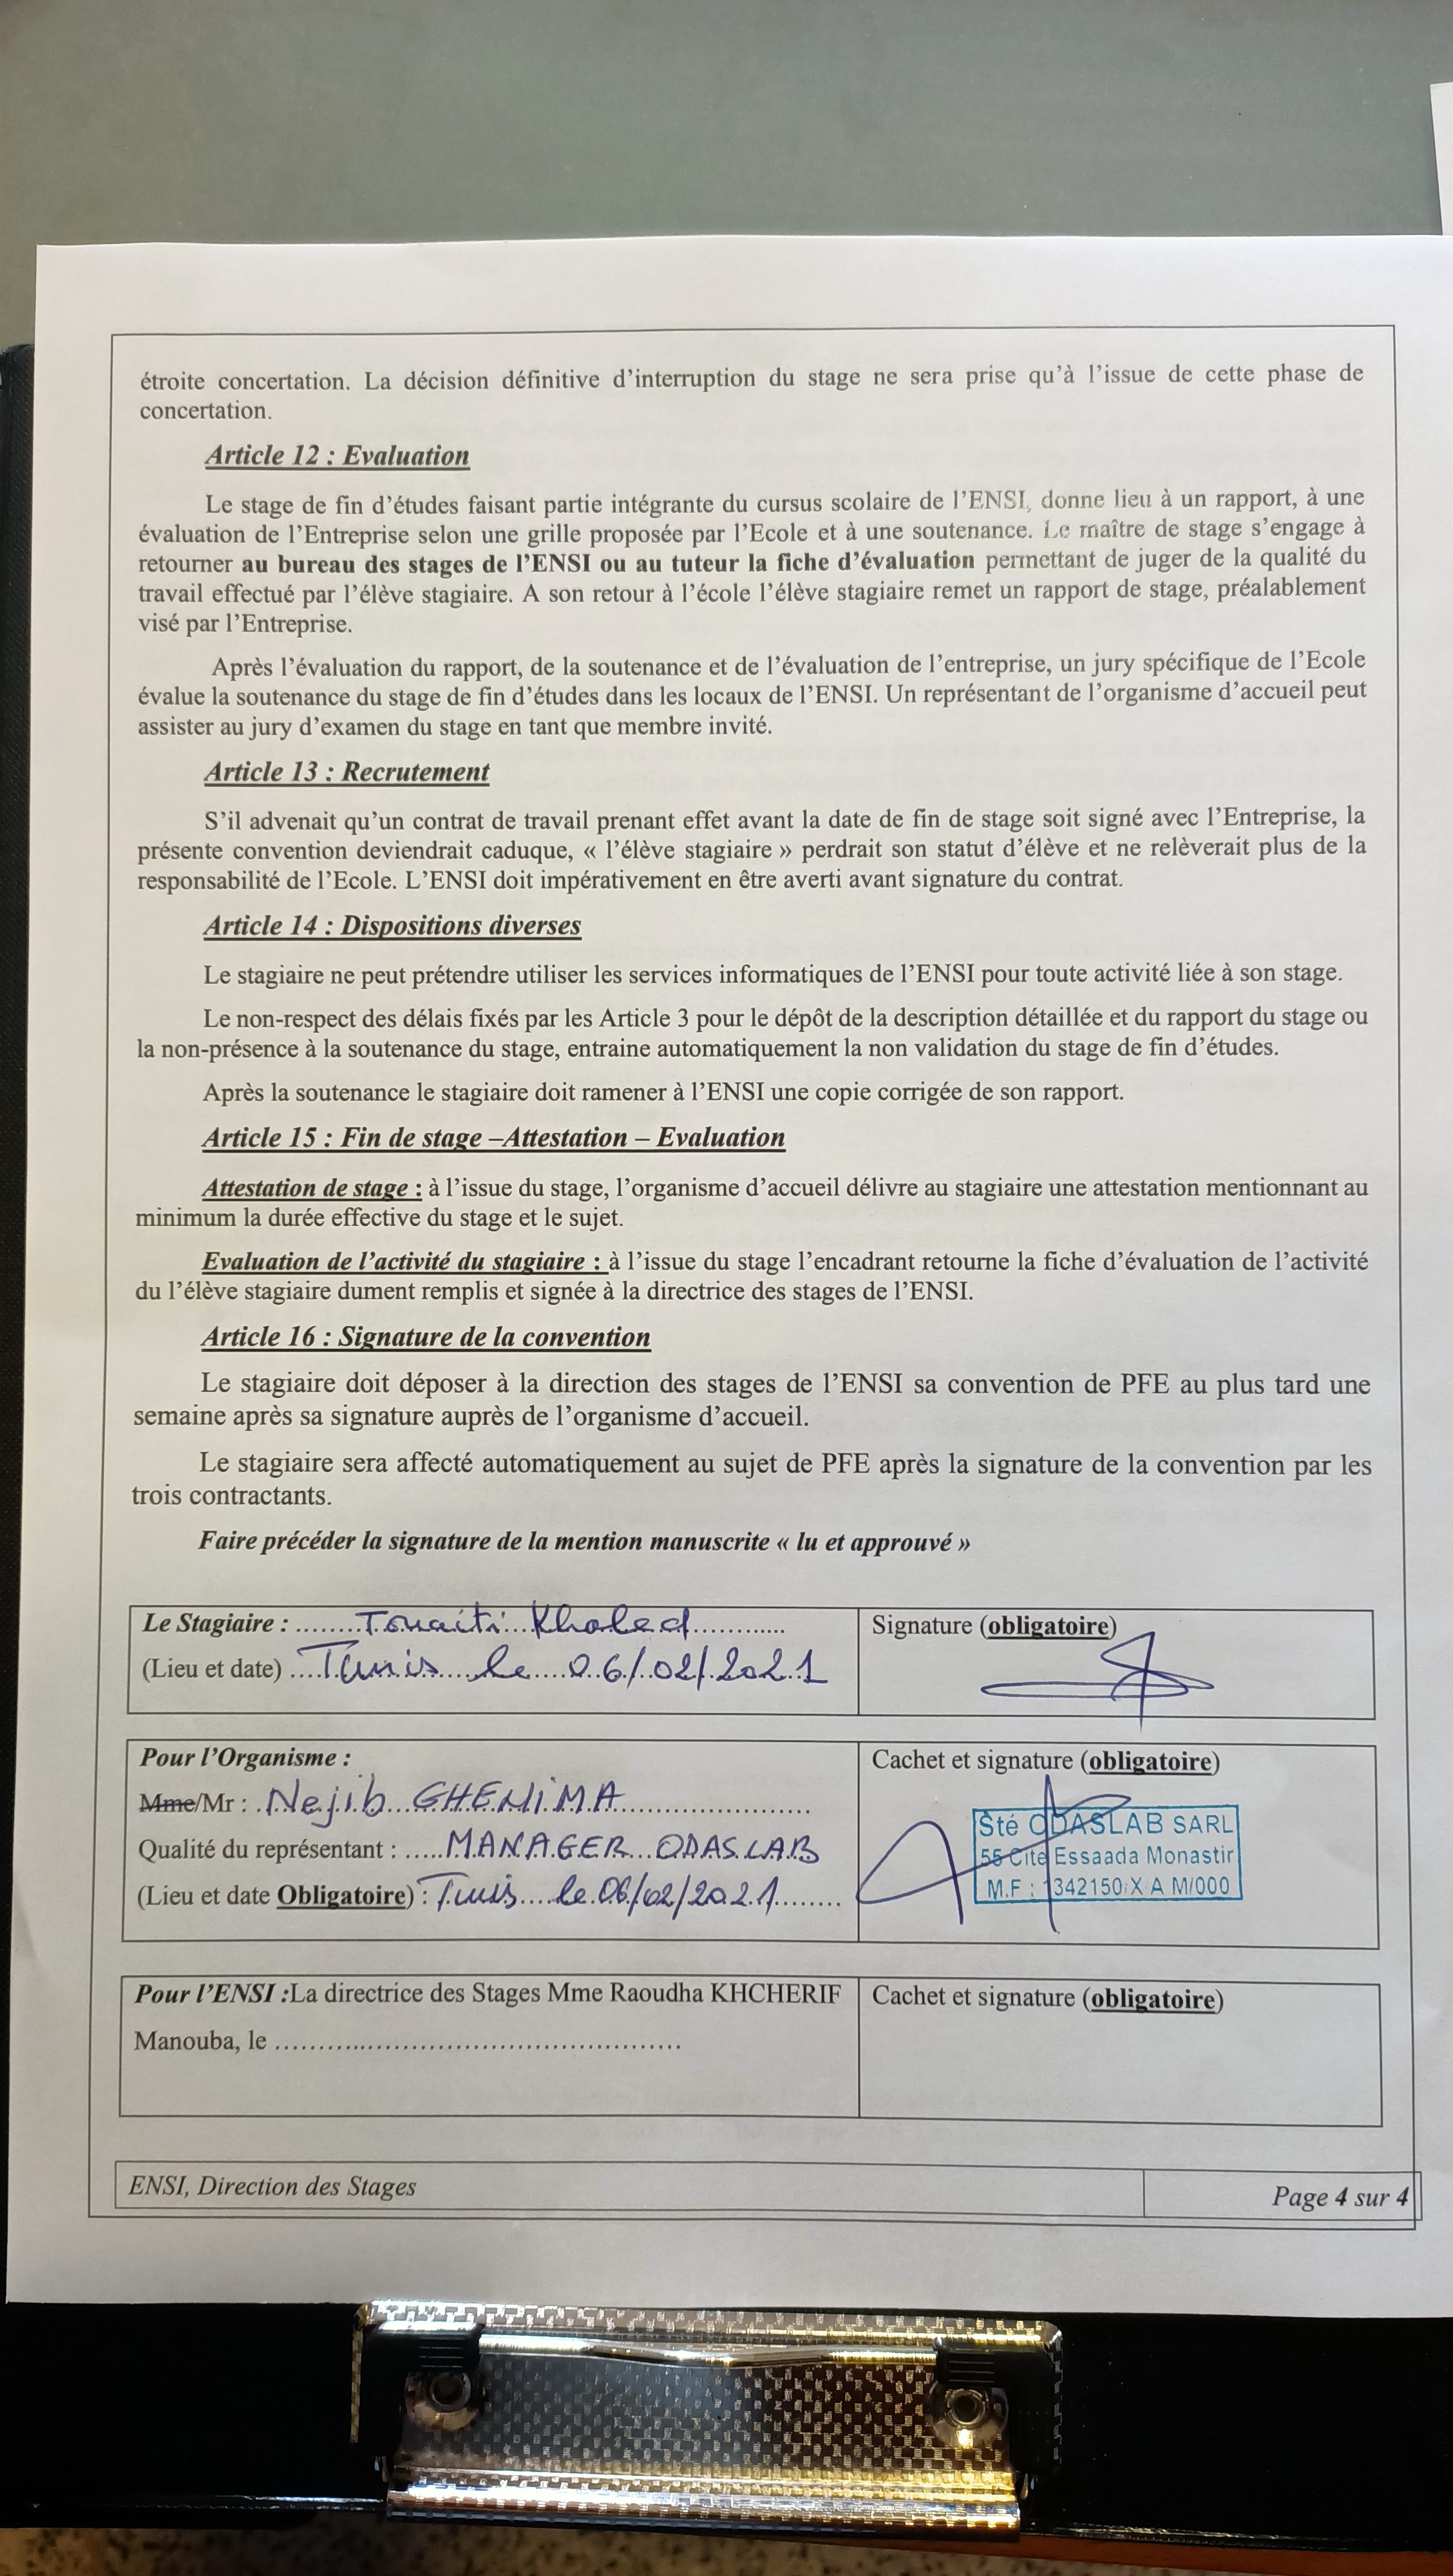 étroite concertation. La décision définitive d'interruption du stage ne sera prise qu'à l'issue de cette phase de
concertation.
Article 12 : Evaluation
Le stage de fin d'études faisant partie intégrante du cursus scolaire de l'ENSI, donne lieu à un rapport, à une
évaluation de l'Entreprise selon une grille proposée par l'Ecole et à une soutenance. Le maître de stage s'engage à
retourner au bureau des stages de l'ENSI ou au tuteur la fiche d'évaluation permettant de juger de la qualité du
travail effectué par l'élève stagiaire. A son retour à l'école l'élève stagiaire remet un rapport de stage, préalablement
visé par l'Entreprise.
Après l'évaluation du rapport, de la soutenance et de l'évaluation de l'entreprise, un jury spécifique de l'Ecole
évalue la soutenance du stage de fin d'études dans les locaux de l'ENSI. Un représentant de l'organisme d'accueil peut
assister au jury d'examen du stage en tant que membre invité.
Article 13 : Recrutement
S'il advenait qu'un contrat de travail prenant effet avant la date de fin de stage soit signé avec l'Entreprise, la
présente convention deviendrait caduque, « l'élève stagiaire » perdrait son statut d'élève et ne relèverait plus de la
responsabilité de l'Ecole. L'ENSI doit impérativement en être averti avant signature du contrat.
Article 14 : Dispositions diverses
Le stagiaire ne peut prétendre utiliser les services informatiques de l'ENSI pour toute activité liée à son stage.
Le non-respect des délais fixés par les Article 3 pour le dépôt de la description détaillée et du rapport du stage ou
la non-présence à la soutenance du stage, entraine automatiquement la non validation du stage de fin d'études.
Après la soutenance le stagiaire doit ramener à l'ENSI une copie corrigée de son rapport.
Article 15 : Fin de stage –Attestation – Evaluation
Attestation de stage : à l'issue du stage, l'organisme d'accueil délivre au stagiaire une attestation mentionnant au
minimum la durée effective du stage et le sujet.
Evaluation de l'activité du stagiaire : à l'issue du stage l'encadrant retourne la fiche d'évaluation de l'activité
du l'élève stagiaire dument remplis et signée à la directrice des stages de l'ENSI.
Article 16 : Signature de la convention
Le stagiaire doit déposer à la direction des stages de l'ENSI sa convention de PFE au plus tard une
semaine après sa signature auprès de l'organisme d'accueil.
Le stagiaire sera affecté automatiquement au sujet de PFE après la signature de la convention par les
trois contractants.
Faire précéder la signature de la mention manuscrite « lu et approuvé »
Le Stagiaire : Touaiti Khaled
(Lieu et date) Tunis le 06/02/2021
Signature (obligatoire)
Pour l'Organisme :
Mme/Mr : Nejib GHENIMA
Qualité du représentant : MANAGER ODASLAB
(Lieu et date Obligatoire) : Tunis le 06/02/2021
Cachet et signature (obligatoire)
Sté ODASLAB SARL
55 Cité Essaada Monastir
M.F : 1342150 X A M/000
Pour l'ENSI :La directrice des Stages Mme Raoudha KHCHERIF
Manouba, le
Cachet et signature (obligatoire)
ENSI, Direction des Stages
Page 4 sur 4